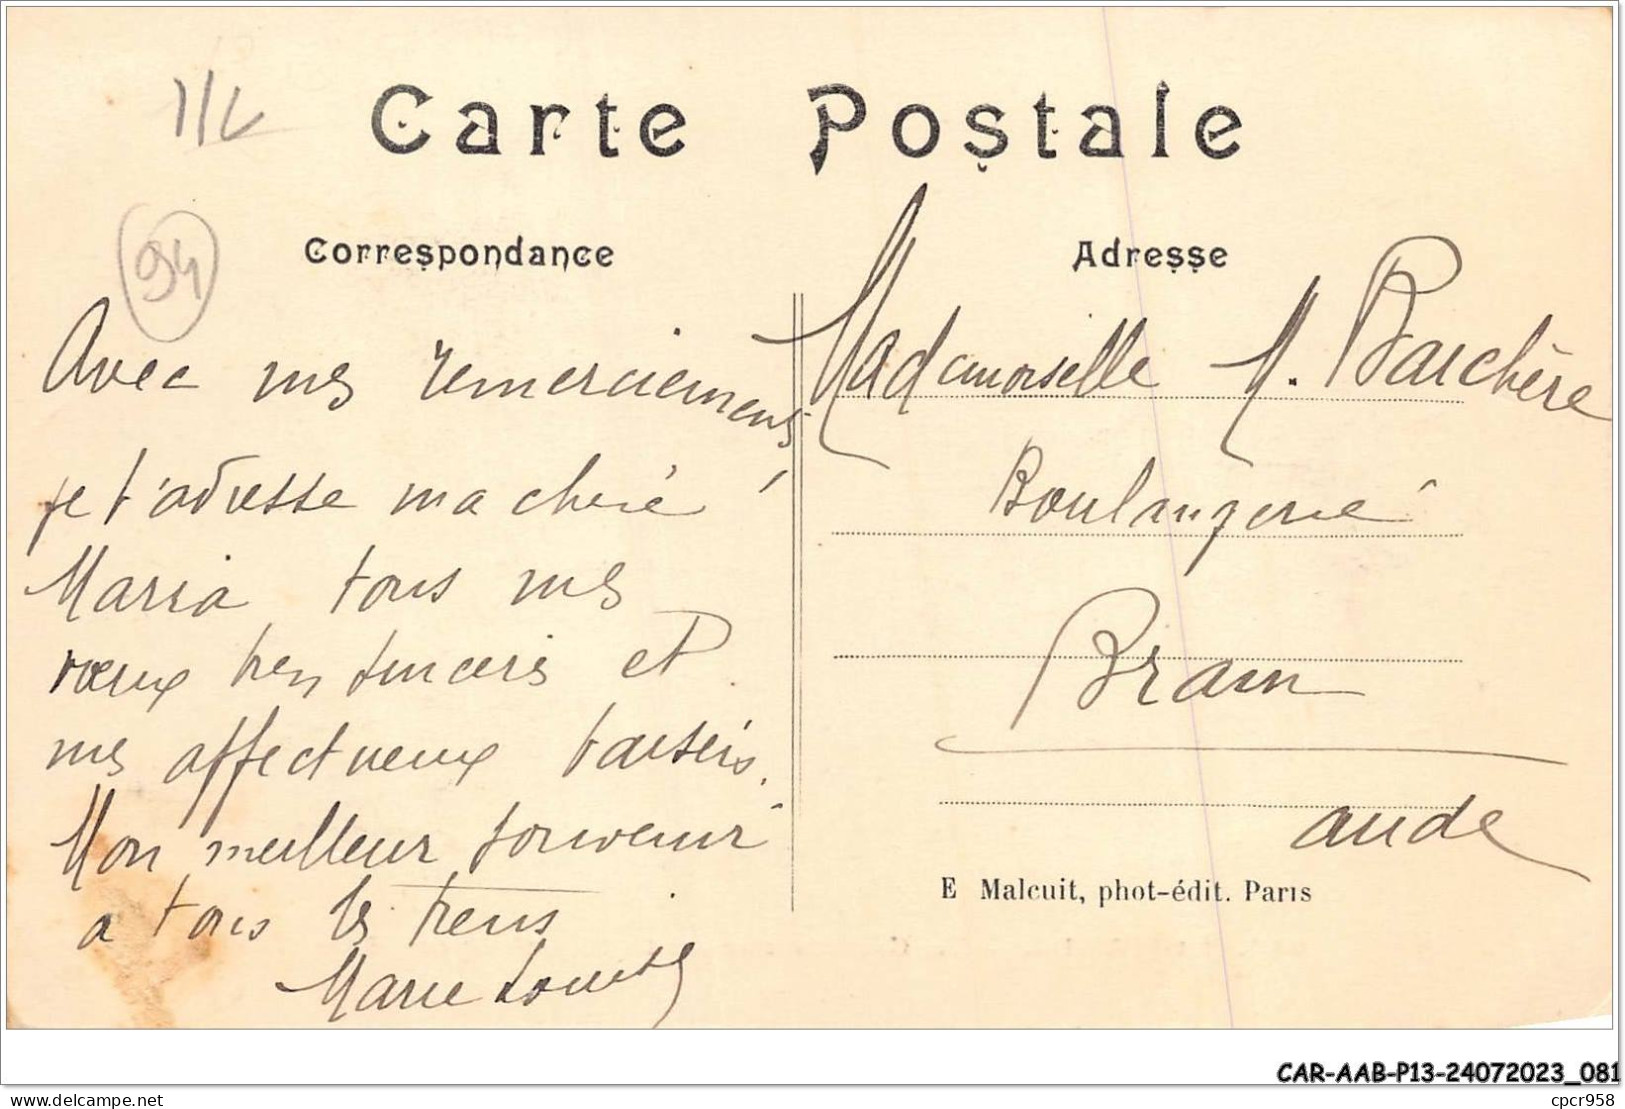 Carte Postale
94
Correspondance
Avec mes remerciements,
je t'adresse ma chère
Maria tous mes
vœux bien sincères et
mes affectueux baisers.
Mon meilleur souvenir
a tous les tiens
Marie Louise
Adresse
Mademoiselle M. Barchère
Boulangerie
Bram
aude
E Malcuit, phot-édit. Paris
CAR-AAB-P13-24072023_081
delcampe.net
cpcr958